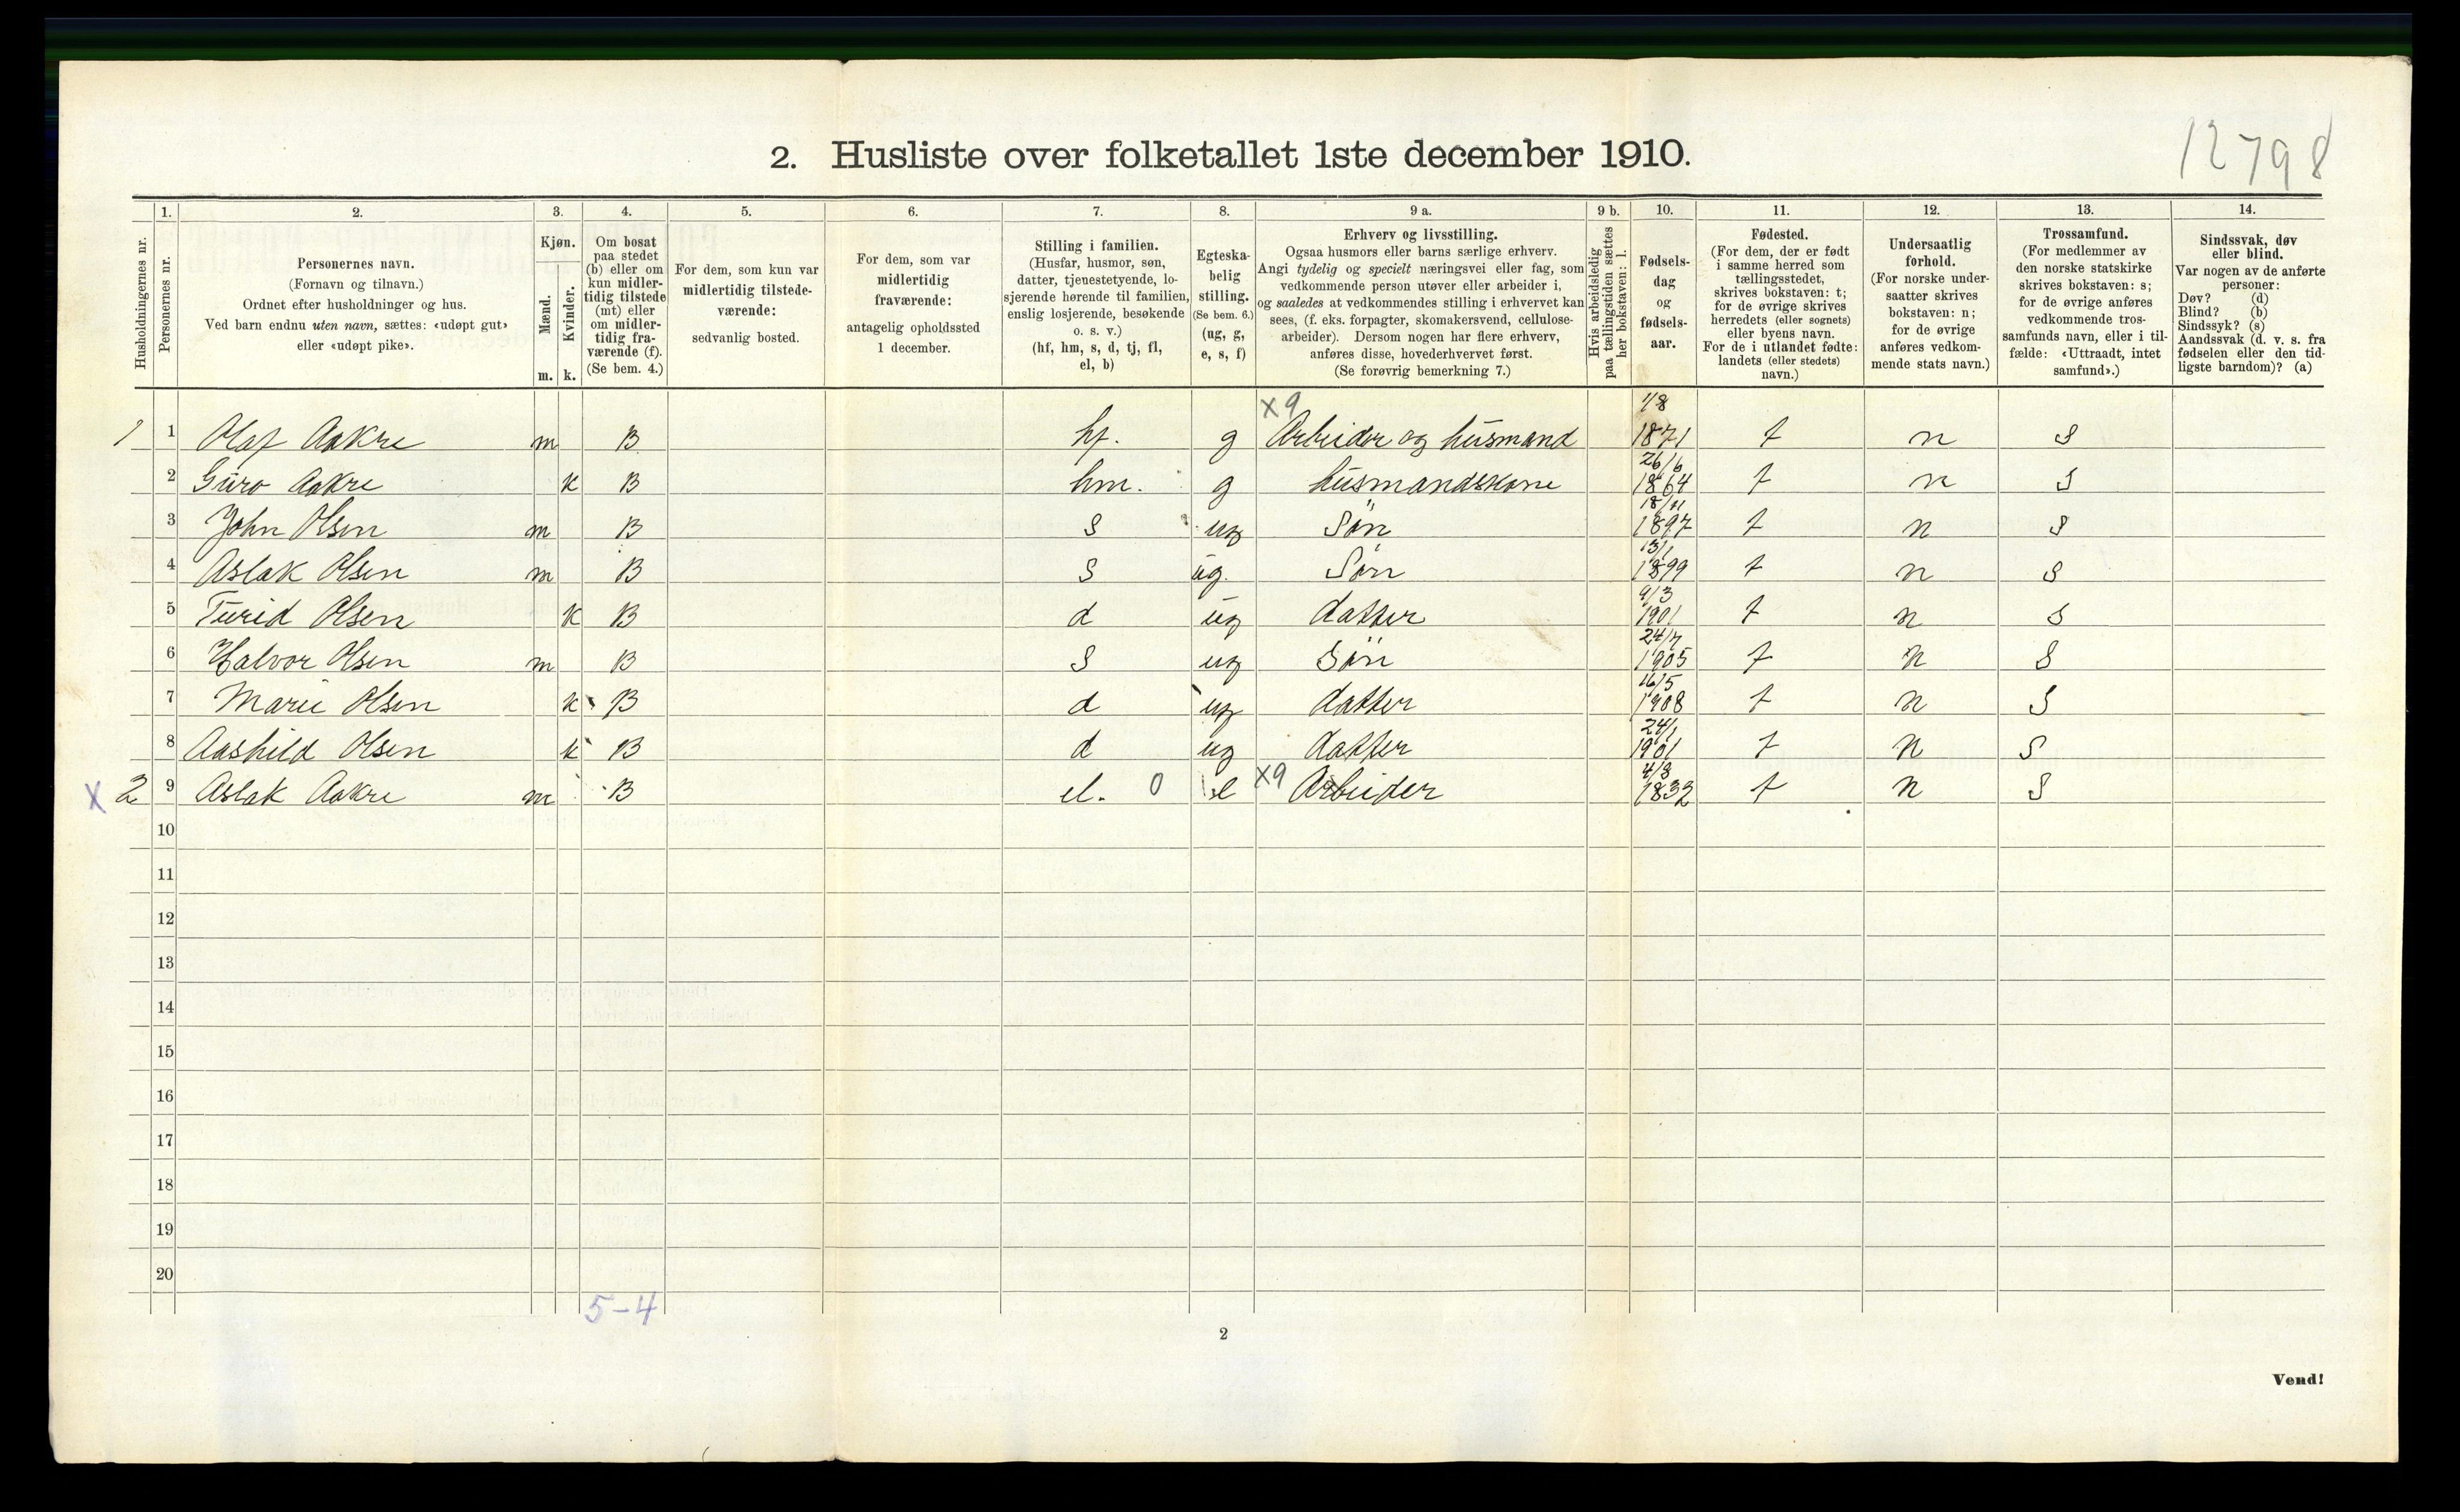 12798
2. Husliste over folketallet 1ste december 1910.
1. 2. 3. 4. 5. 6. 7. 8. 9 a. 9 b. 10. 11. 12. 13. 14.
Husholdningernes nr.
Personernes nr.
Personernes navn.
(Fornavn og tilnavn.)
Ordnet efter husholdninger og hus.
Ved barn endnu uten navn, sættes: «udøpt gut»
eller «udøpt pike».
Kjøn.
Mænd.
Kvinder.
m. k.
Om bosat
paa stedet
(b) eller om
kun midler-
tidig tilstede
(mt) eller
om midler-
tidig fra-
værende (f).
(Se bem. 4.)
For dem, som kun var
midlertidig tilstede-
værende:
sedvanlig bosted.
For dem, som var
midlertidig
fraværende:
antagelig opholdssted
1 december.
Stilling i familien.
(Husfar, husmor, søn,
datter, tjenestetyende, lo-
sjerende hørende til familien,
enslig losjerende, besøkende
o. s. v.)
(hf, hm, s, d, tj, fl,
el, b)
Egteska-
belig
stilling.
(Se bem. 6.)
(ug, g,
e, s, f)
Erhverv og livsstilling.
Ogsaa husmors eller barns særlige erhverv.
Angi tydelig og specielt næringsvei eller fag, som
vedkommende person utøver eller arbeider i,
og saaledes at vedkommendes stilling i erhvervet kan
sees, (f. eks. forpagter, skomakersvend, cellulose-
arbeider). Dersom nogen har flere erhverv,
anføres disse, hovederhvervet først.
(Se forøvrig bemerkning 7.)
Hvis arbeidsledig
paa tællingstiden sættes
her bokstaven: l.
Fødsels-
dag
og
fødsels-
aar.
Fødested.
(For dem, der er født
i samme herred som
tællingsstedet,
skrives bokstaven: t;
for de øvrige skrives
herredets (eller sognets)
eller byens navn.
For de i utlandet fødte:
landets (eller stedets)
navn.)
Undersaatlig
forhold.
(For norske under-
saatter skrives
bokstaven: n;
for de øvrige
anføres vedkom-
mende stats navn.)
Trossamfund.
(For medlemmer av
den norske statskirke
skrives bokstaven: s;
for de øvrige anføres
vedkommende tros-
samfunds navn, eller i til-
fælde: «Uttraadt, intet
samfund».)
Sindssvak, døv
eller blind.
Var nogen av de anførte
personer:
Døv? (d)
Blind? (b)
Sindssyk? (s)
Aandssvak (d. v. s. fra
fødselen eller den tid-
ligste barndom)? (a)
1 1 Olaf Aakre m B hf. g x9 Arbeider og husmand 1/8 1871 t n S
2 Guro Aakre k B hm. g husmandskone 26/6 1864 t n S
3 John Olsen m B S ug Søn 18/11 1897 t n S
4 Aslak Olsen m B S ug. Søn 13/1 1899 t n S
5 Turid Olsen k B d ug datter 9/3 1901 t n S
6 Halvor Olsen m B S ug Søn 24/7 1905 t n S
7 Marie Olsen k B d ug datter 16/5 1908 t n S
8 Aashild Olsen k B d ug datter 24/1 1901 t n S
x 2 9 Aslak Aakre m B el. 0 e x9 Arbeider 4/3 1832 t n S
10
11
12
13
14
15
16
17
18
19
20
5-4
2
Vend!